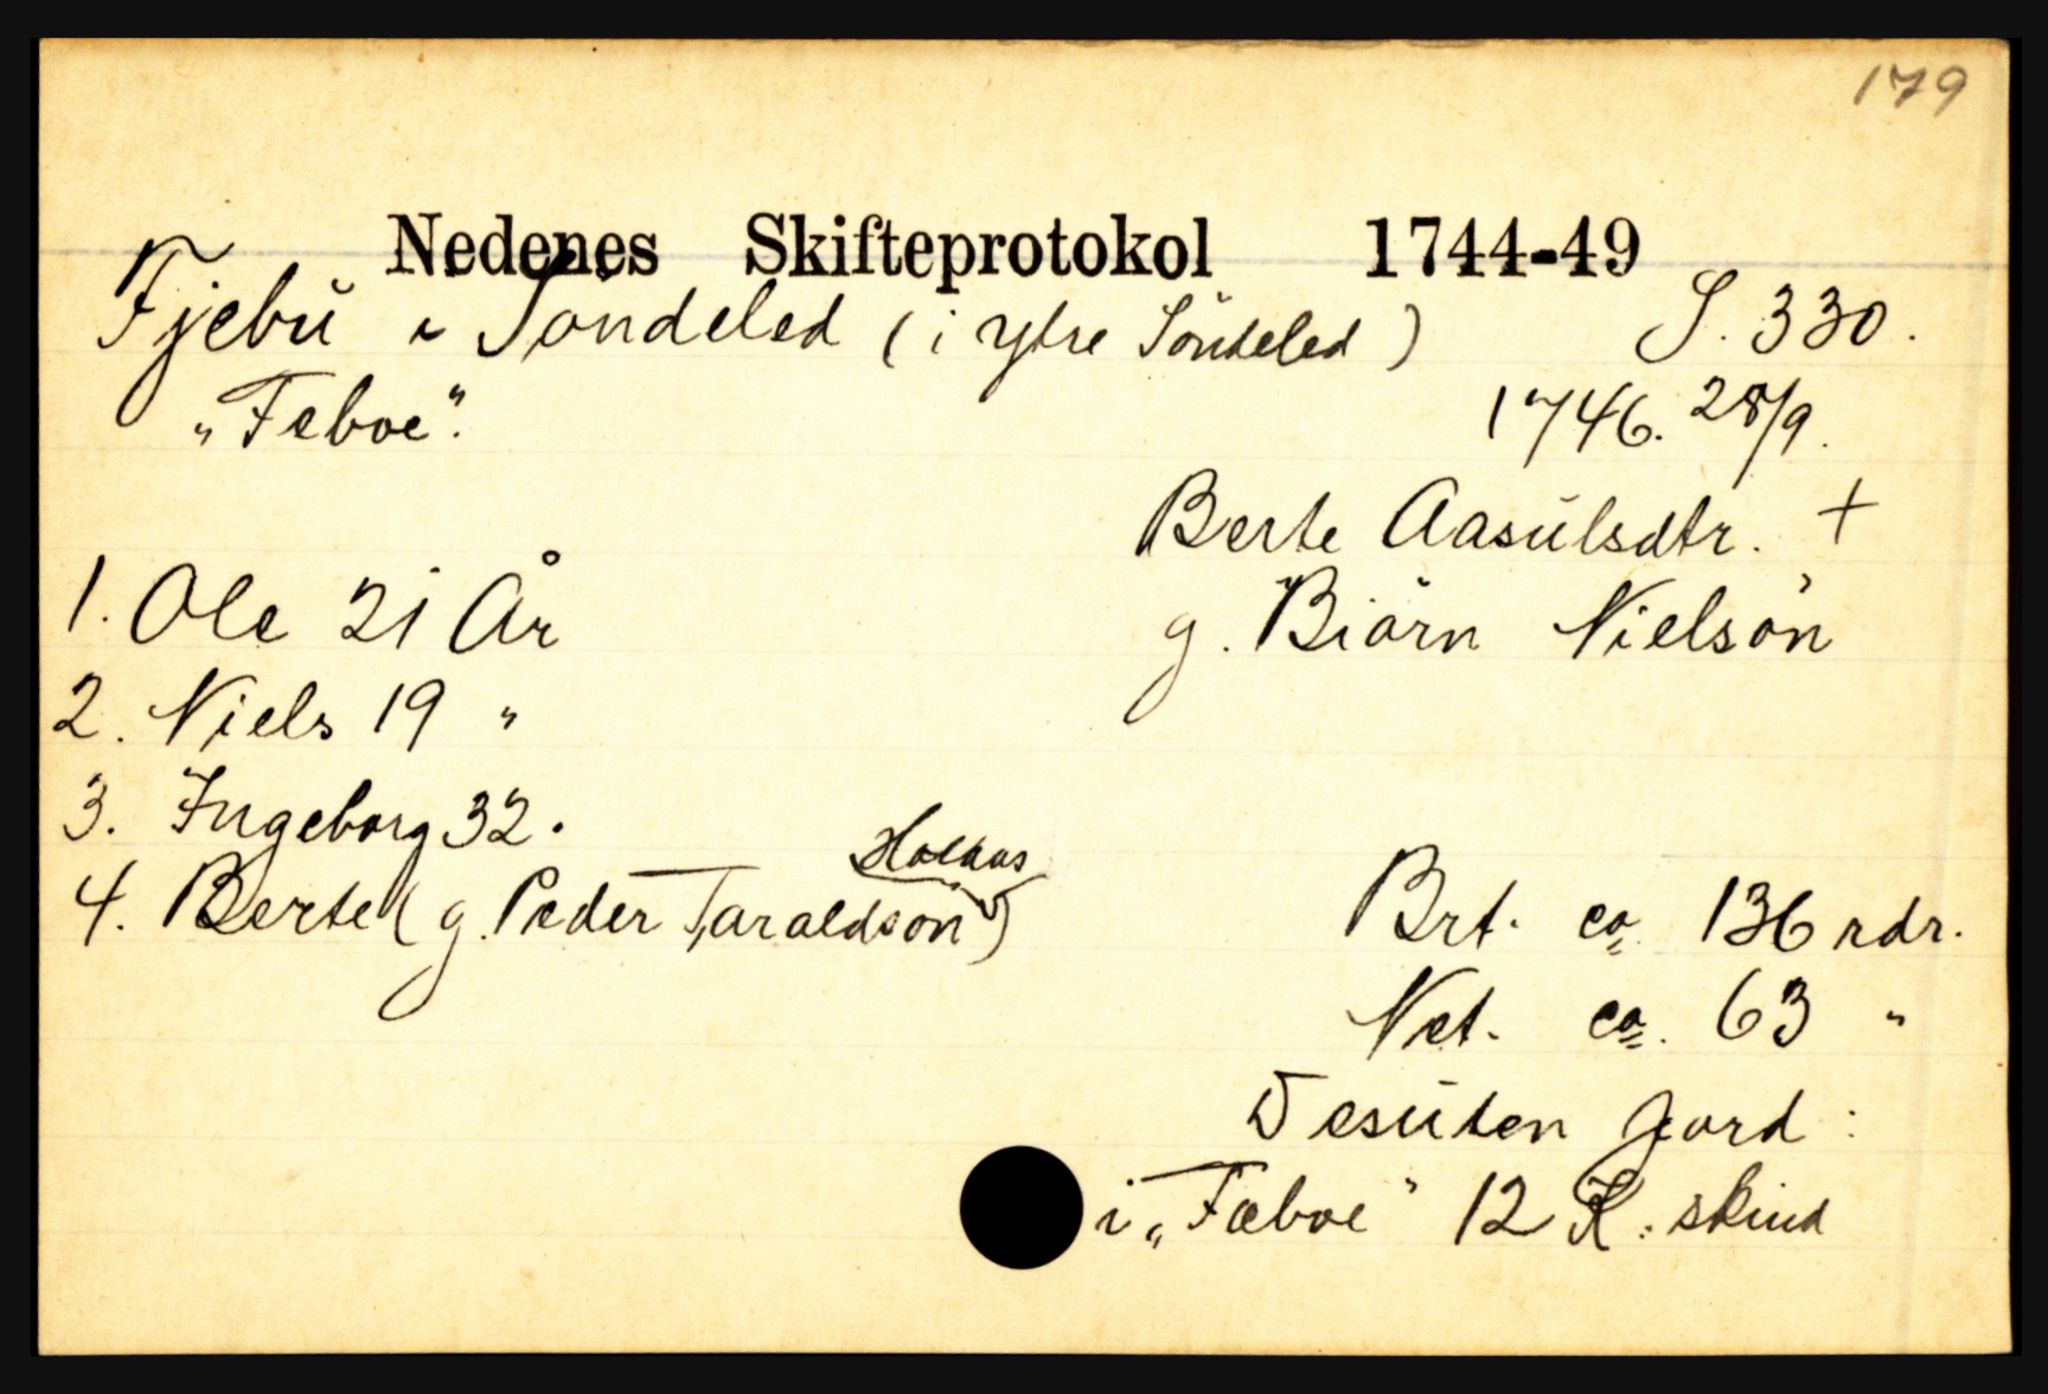 179
Nedenes Skifteprotokol 1744-49
Fjebu i Söndeled (i Ytre Söndeled) S. 330.
„Feboe". 1746. 28/9.
Berte Aasulsdtr. +
1. Ole 21 År g. Biörn Nielsön
2. Niels 19 "
3. Ingeborg 32.
Holaas
4. Berte (g. Peder Taraldsön) Brt. ca. 136 rdr.
Net. ca. 63 "
Desuten Jord:
i „Fæboe" 12 K: skind